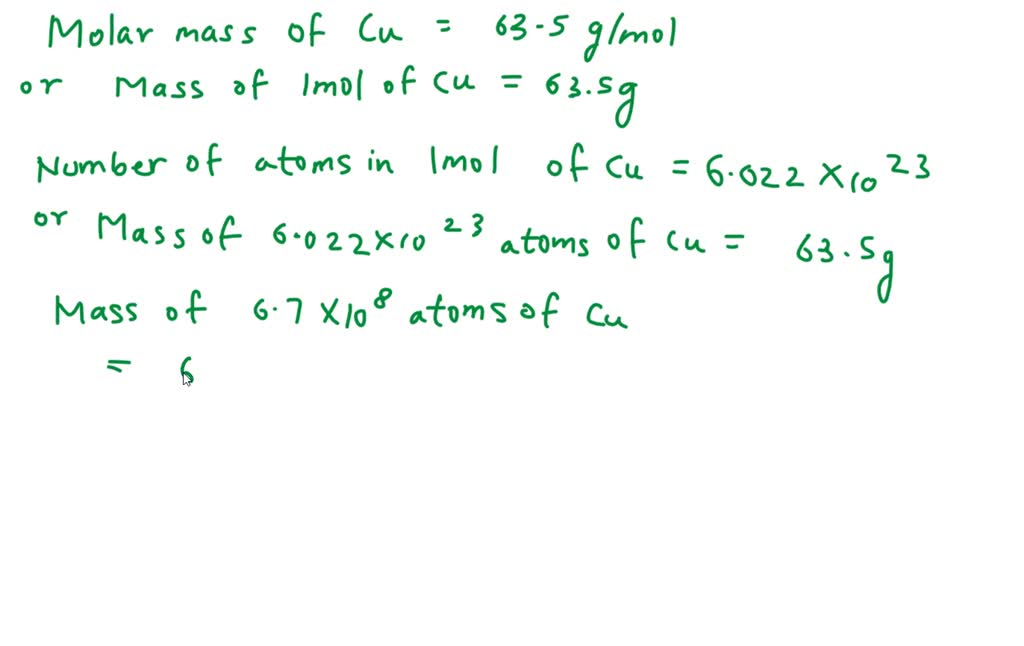 Molar mass of Cu = 63.5 g/mol
or Mass of 1mol of Cu = 63.5g
Number of atoms in 1mol of Cu = 6.022 × 10²³
or Mass of 6.022×10²³ atoms of Cu = 63.5g
Mass of 6.7 ×10⁸ atoms of Cu
= 6